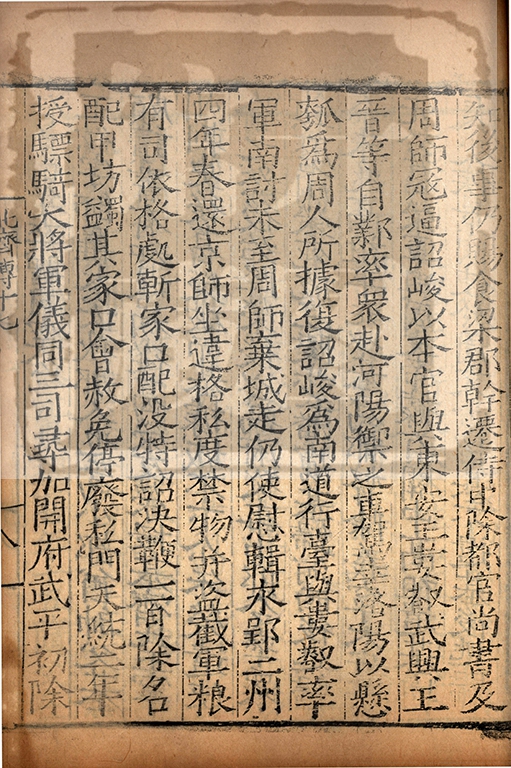 知後事仍賜食梁郡幹遷侍中除都官尚書及
周師寇逼詔峻以本官與東安王婁叡武興王
晉等自鄴率衆赴河陽禦之車駕幸洛陽以懸
瓠爲周人所據復詔峻爲南道行臺與婁叡率
軍南討未至周師棄城走仍使慰輯永郢二州
四年春還京師坐違格私度禁物并盜截軍粮
有司依格處斬家口配沒特詔決鞭一百除名
配甲坊蠲其家口會赦免停廢私門天統二年
授驃騎大將軍儀同三司尋加開府武平初除
北齊傳十七
十八